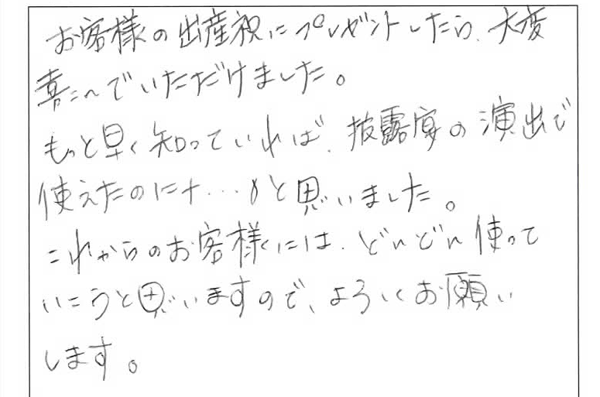 お客様の出産祝にプレゼントしたら、大変
喜こんでいただけました。
もっと早く知っていれば、披露宴の演出で
使えたのにナ…。と思いました。
これからのお客様には、どんどん使って
いこうと思いますので、よろしくお願い
します。